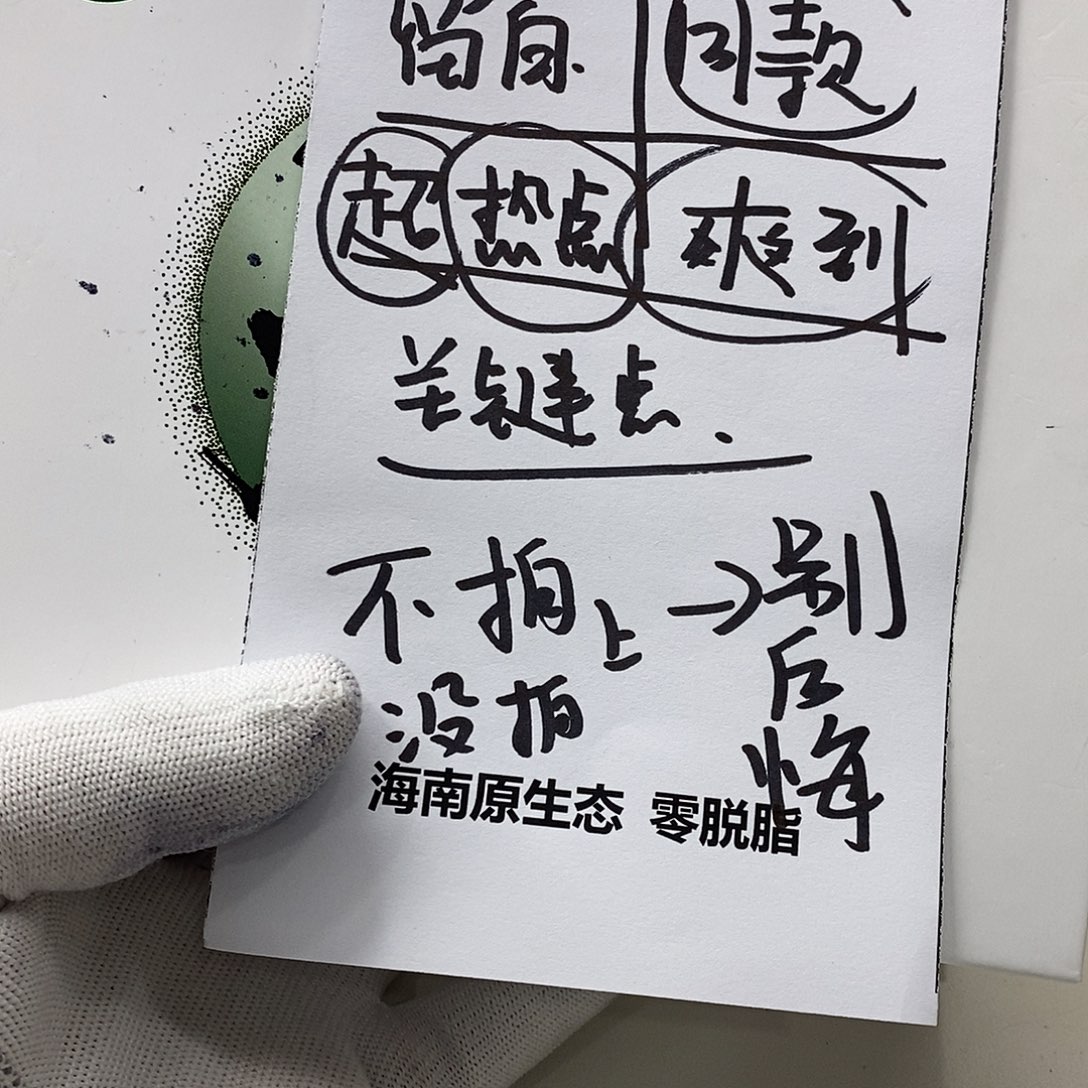 留白 同款
起 热点 爽到
关键点.
不拍上 → 别
没拍 后
悔
海南原生态 零脱脂